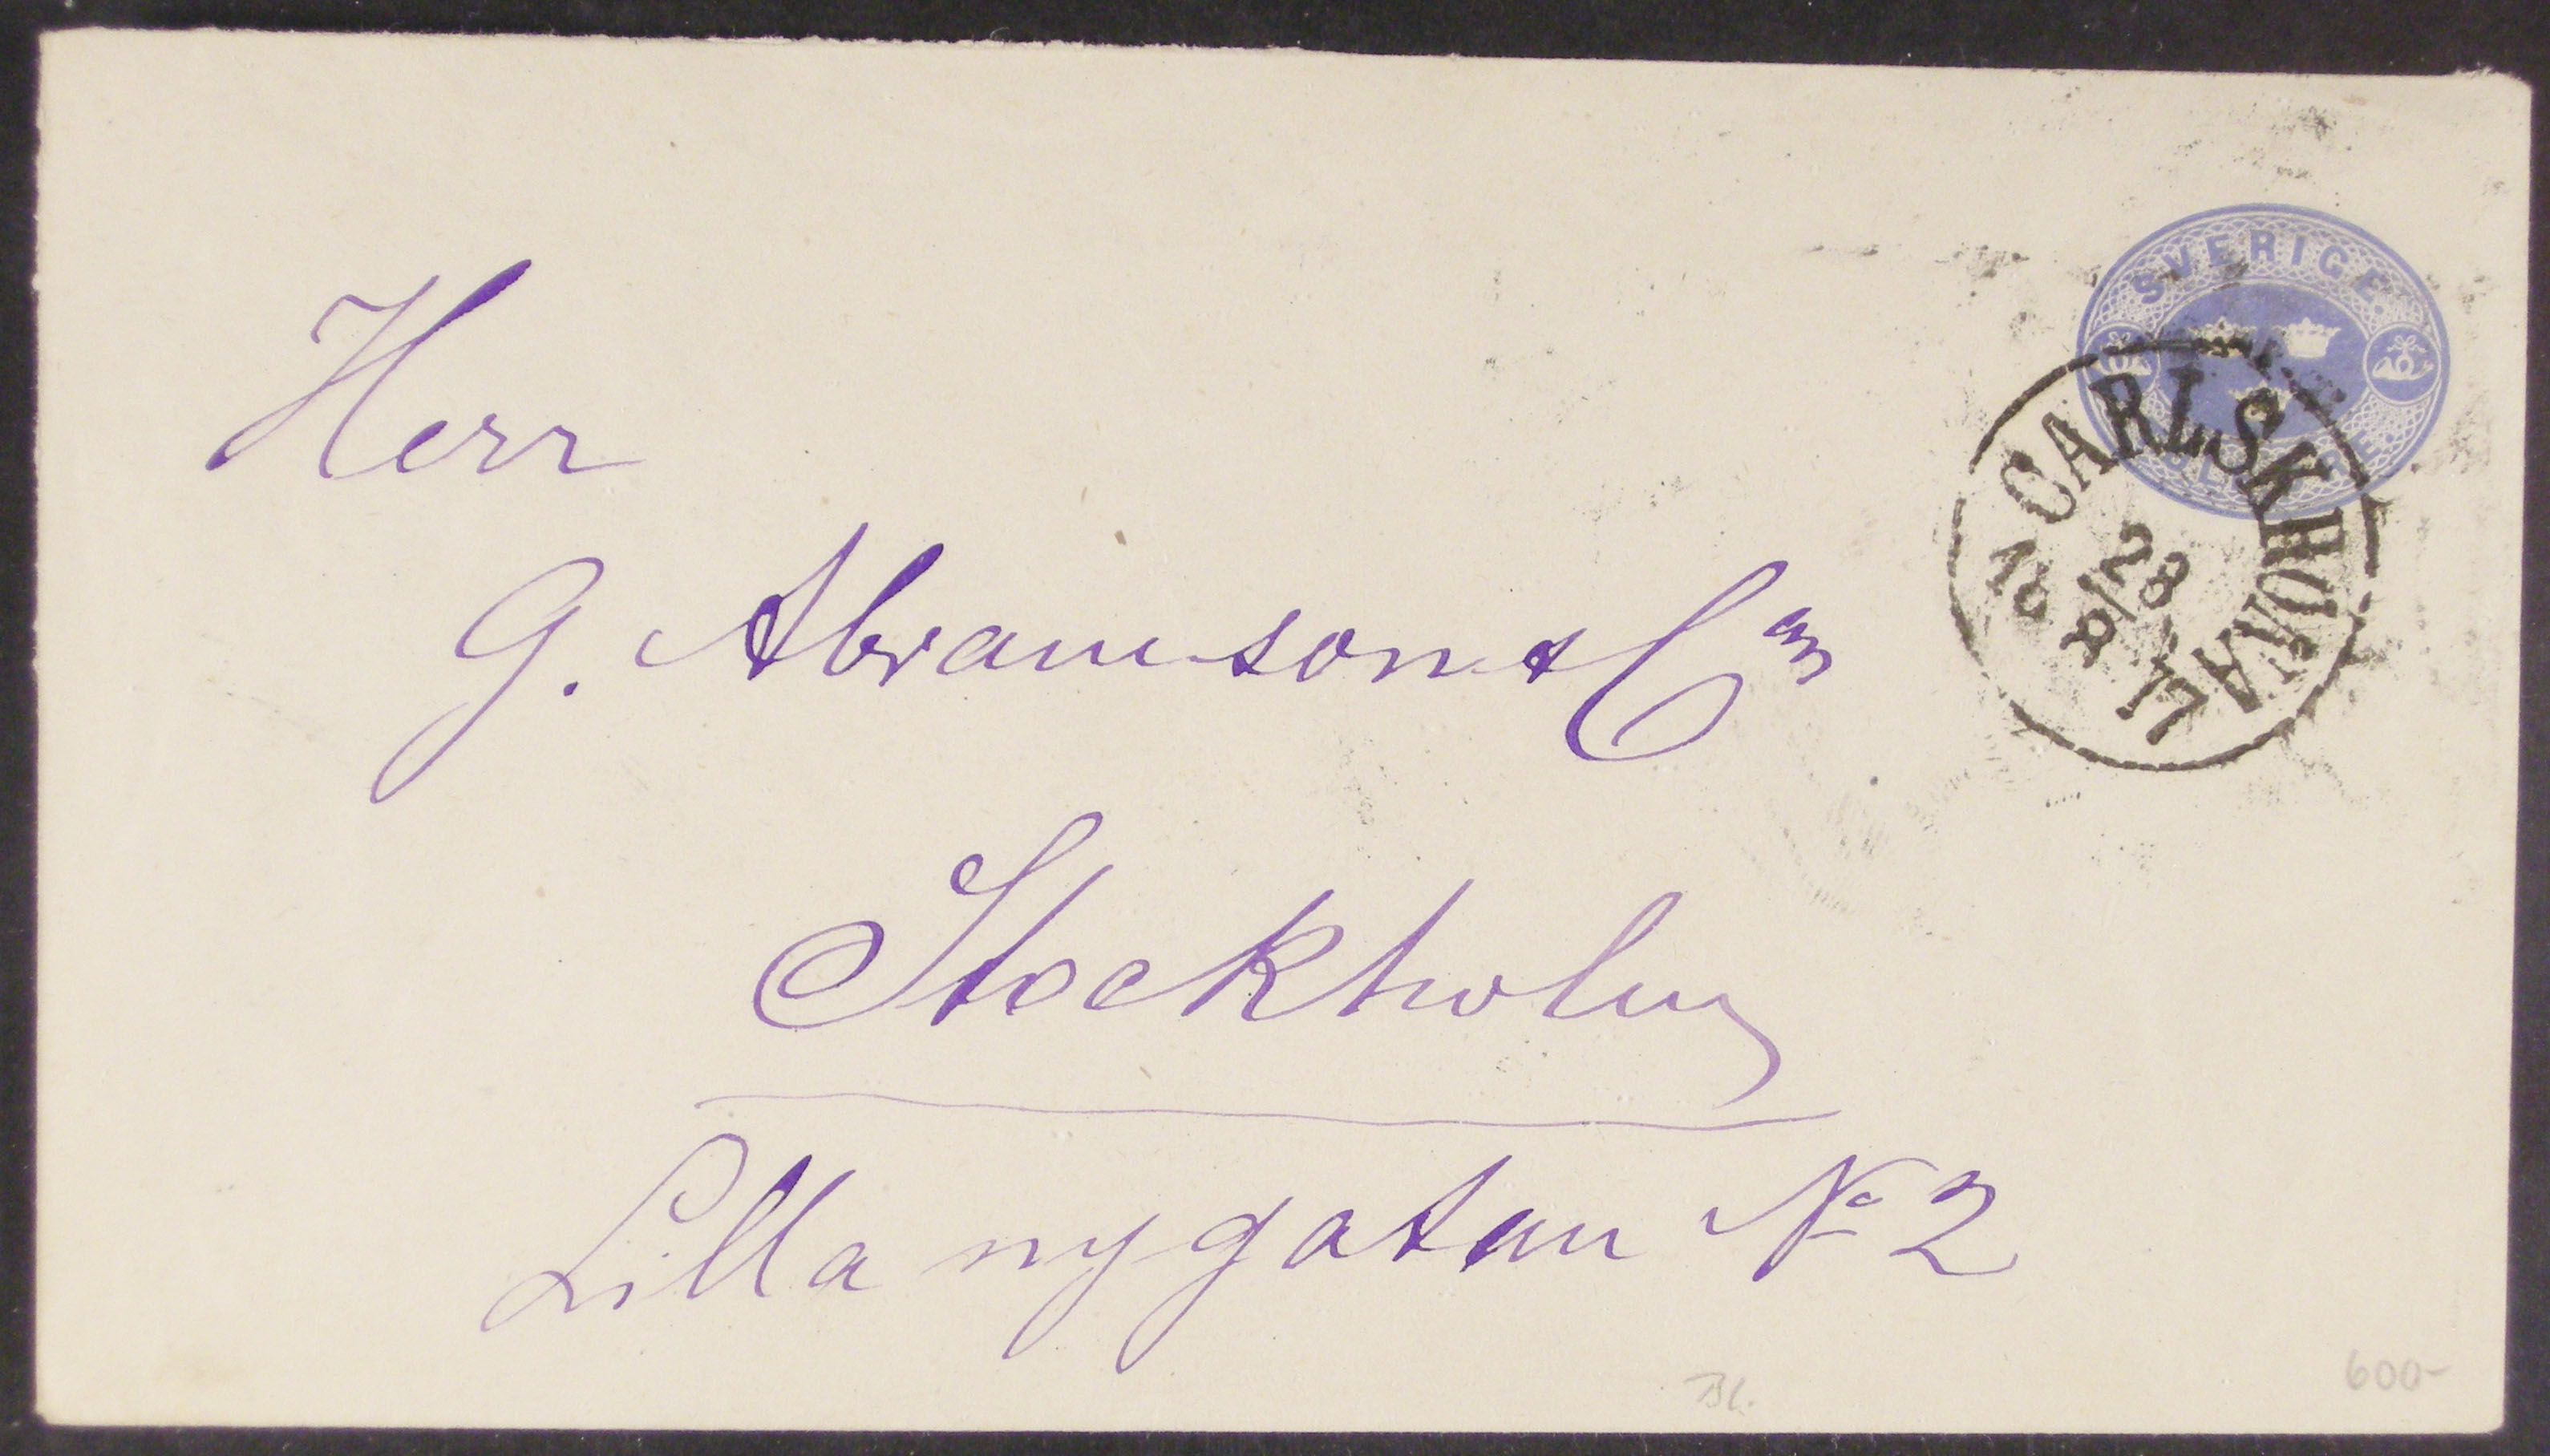 SVERIGE
CARLSKRONA
28
18 77
Herr
G. Abramson & C
Stockholm
Lilla nygatan No 2
600-